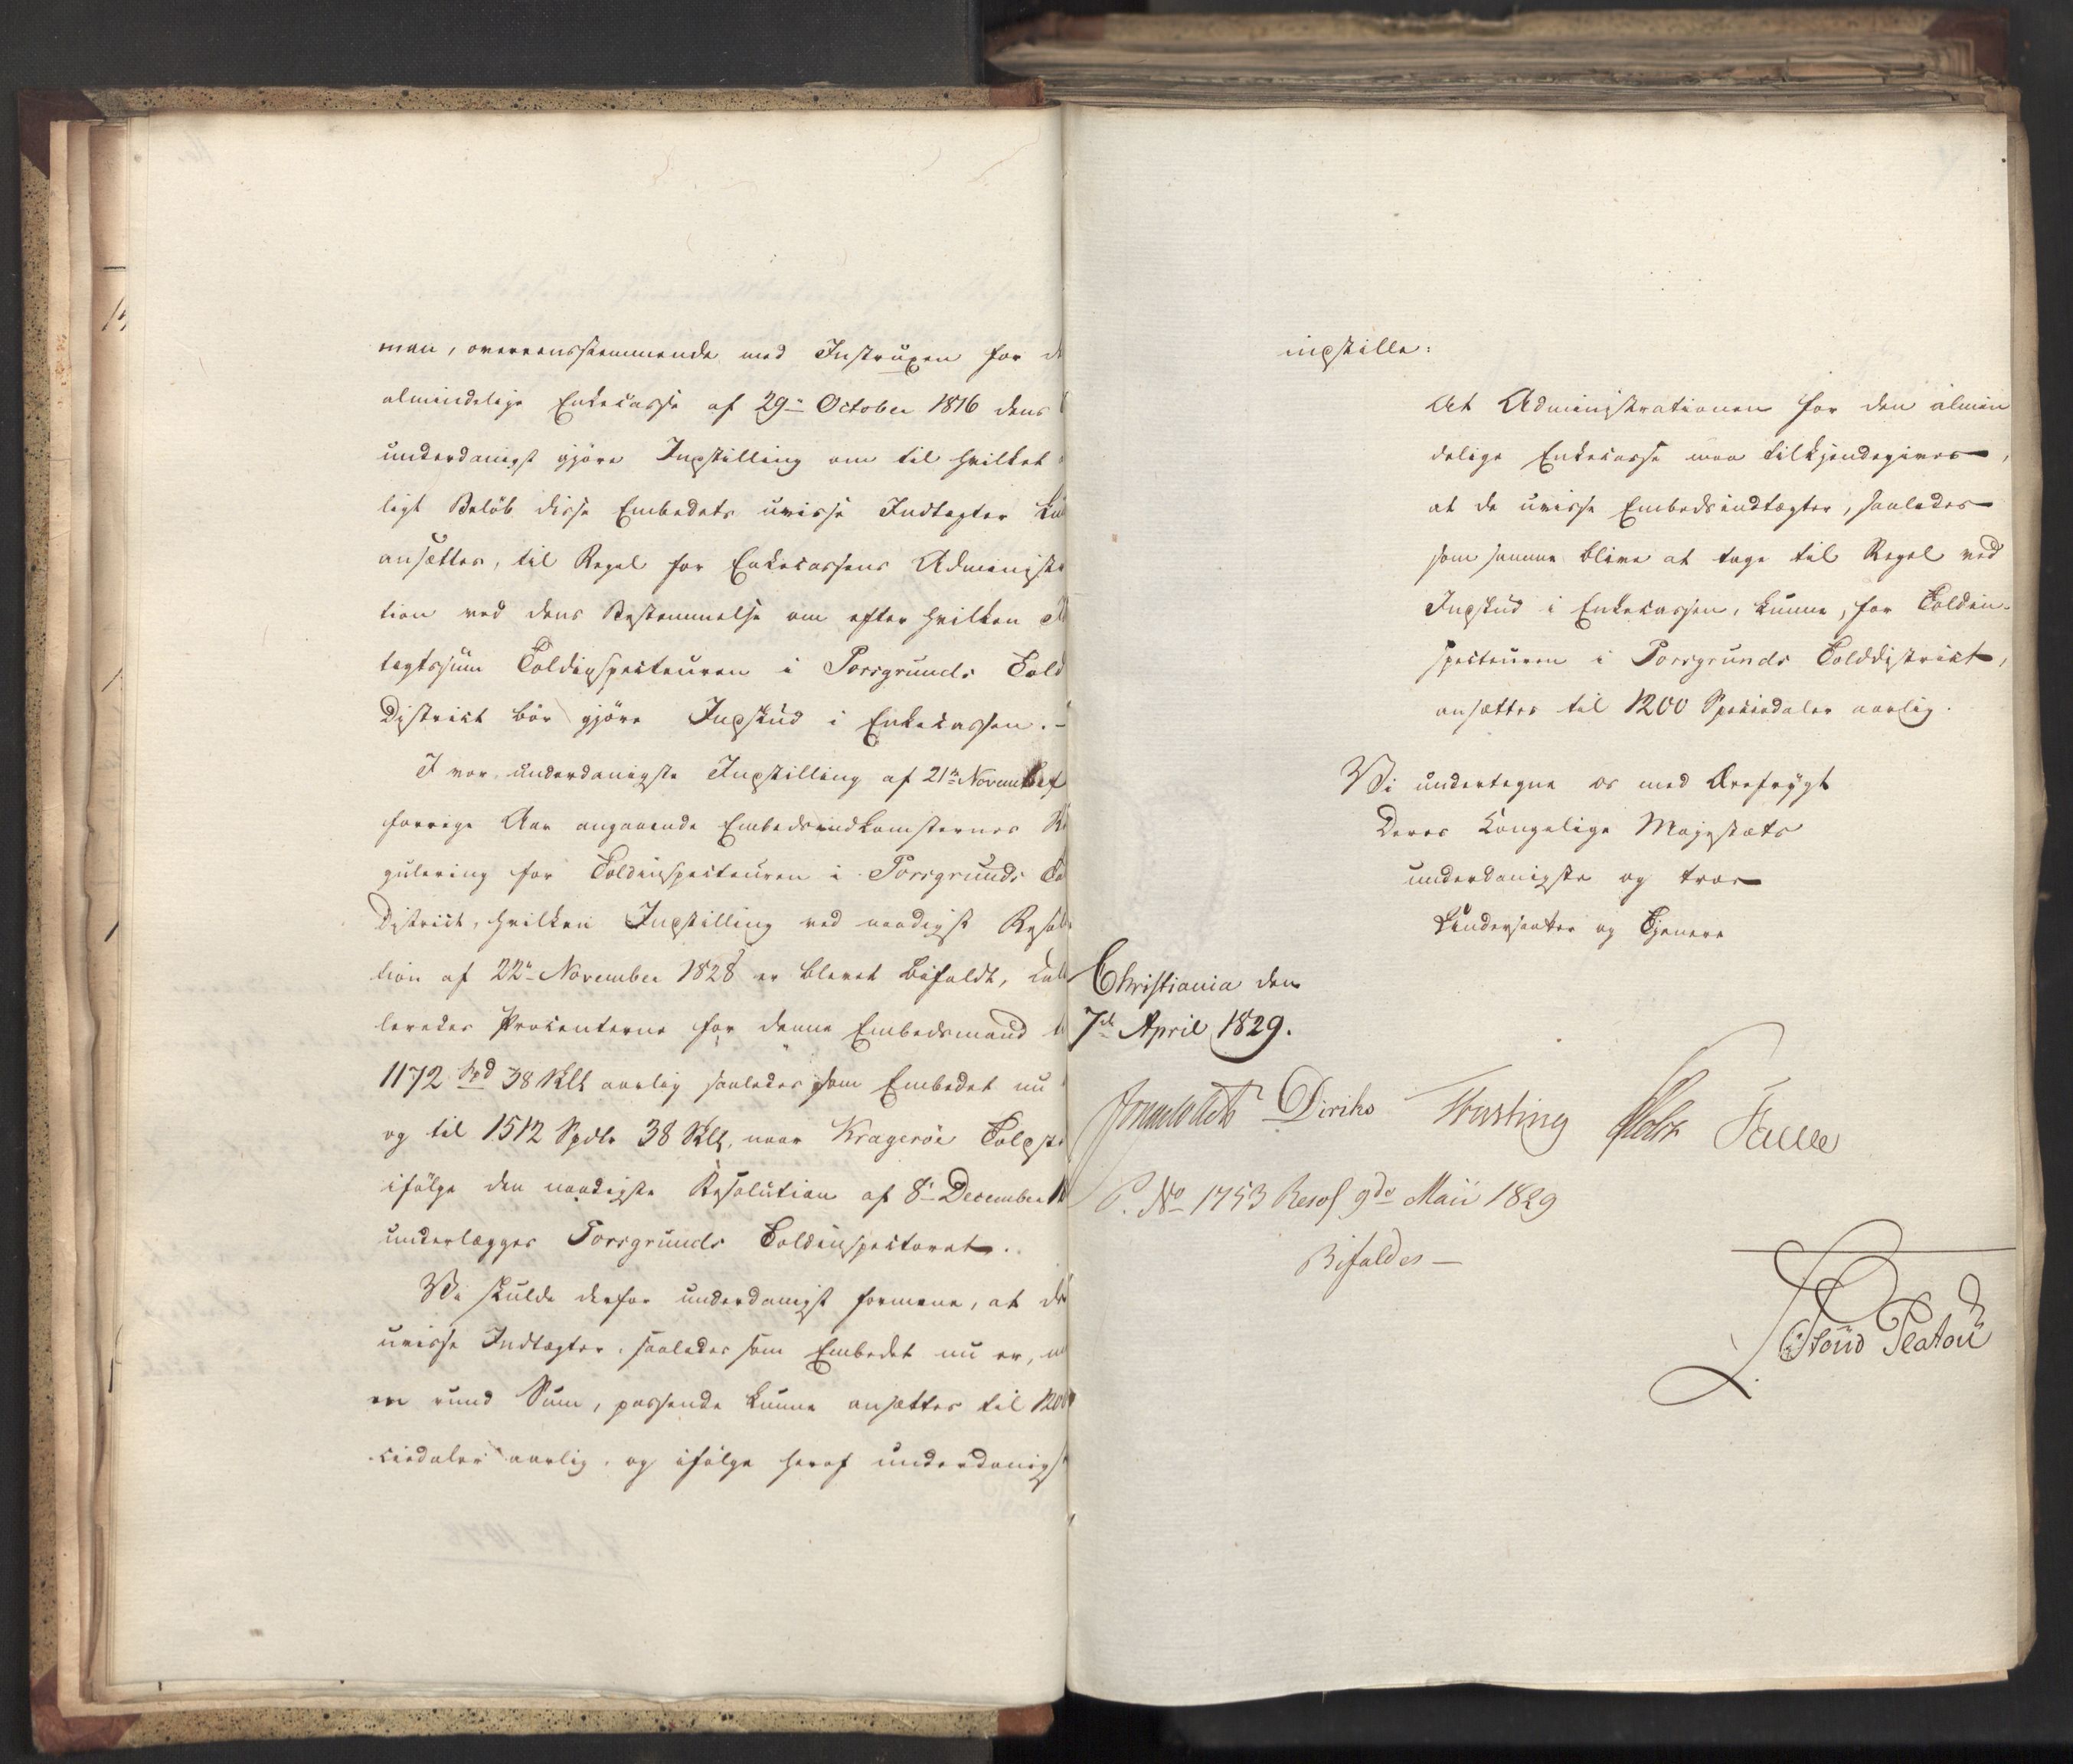 man, overeensstemmende med Instruxen for d
almindelige Enkecasse af 29de October 1816 dens
underdanigst gjøre Indstilling om til hvilket
ligt Beløb disse Embedets uvisse Indtægter ku
ansættes, til Regel for Enkecassens Administra
tion ved dens Bestemmelse om efter hvilken
tægtssum Toldinspecteuren i Porsgrunds Told
District bør gjøre Indskud i Enkecassen. –
I vor underdanigste Indstilling af 21de November
forrige Aar angaaende Embedsindkomsternes Re
gulering for Toldinspecteuren i Porsgrunds To
District, hvilken Indstilling ved naadigst Resolu
tion af 22de November 1828 er blevet bifaldt, cal
leredes Procenterne for denne Embedsmand t
1172 Spd 38 Skll aarlig saaledes som Embedet nu
og til 1512 Spdlr 38 Skll, naar Kragerøe Toldste
ifølge den naadigste Resolution af 8de December 18
underlægges Porsgrunds Toldinspectorat.
Vi skulde derfor underdanigst formene, at de
uvisse Indtægter, saaledes som Embedet nu er,
en rund Sum, passende kunne ansættes til 1200
ciedaler aarlig, og ifølge heraf underdanigst
indstille:
At Administrationen for den almin
delige Enkecasse maa tilkjendegives,
at de uvisse Embedsindtægter, saaledes
som samme blive at tage til Regel ved
Indskud i Enkecassen, kunne, for Toldin-
specteuren i Porsgrunds Tolddistrict,
ansættes til 1200 Speciedaler aarlig.
Vi undertegne os med Ærefrygt
Deres Kongelige Majestæts
underdanigste og troe
Undersaatter og Tjenere
Christiania den
7de April 1829.
Diriks Fasting Falbe
P. No 1753 Resol 9de Maii 1829
Bifaldes –
Platou